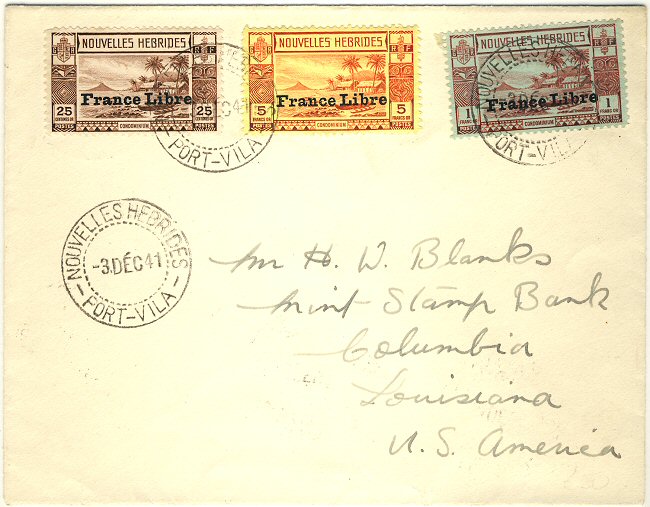 NOUVELLES HEBRIDES
R F
France Libre
25 25
CENTIMES OR
CONDOMINIUM
POSTES
NOUVELLES HEBRIDES
R F
France Libre
5 5
FRANCS OR
CONDOMINIUM
POSTES
NOUVELLES HEBRIDES
R F
France Libre
1 1
FRANC OR
CONDOMINIUM
POSTES
PORT-VILA
NOUVELLES HEBRIDES
PORT-VILA
NOUVELLES HEBRIDES
-3.DÉC 41
PORT-VILA
Mr H. W. Blanks
Mint Stamp Bank
Columbia
Louisiana
U.S. America